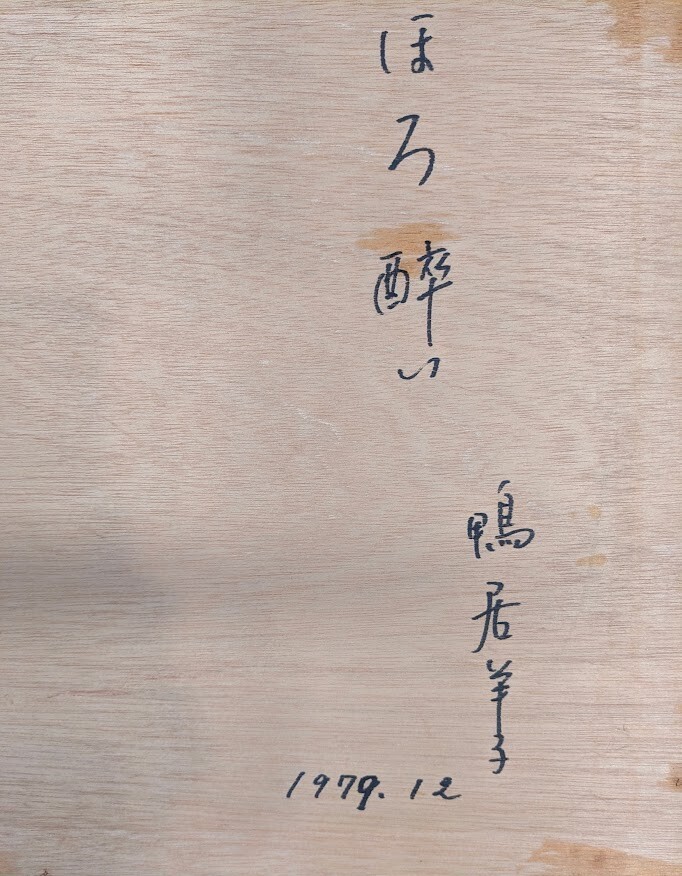 ほろ酔い
鴨居羊子
1979.12